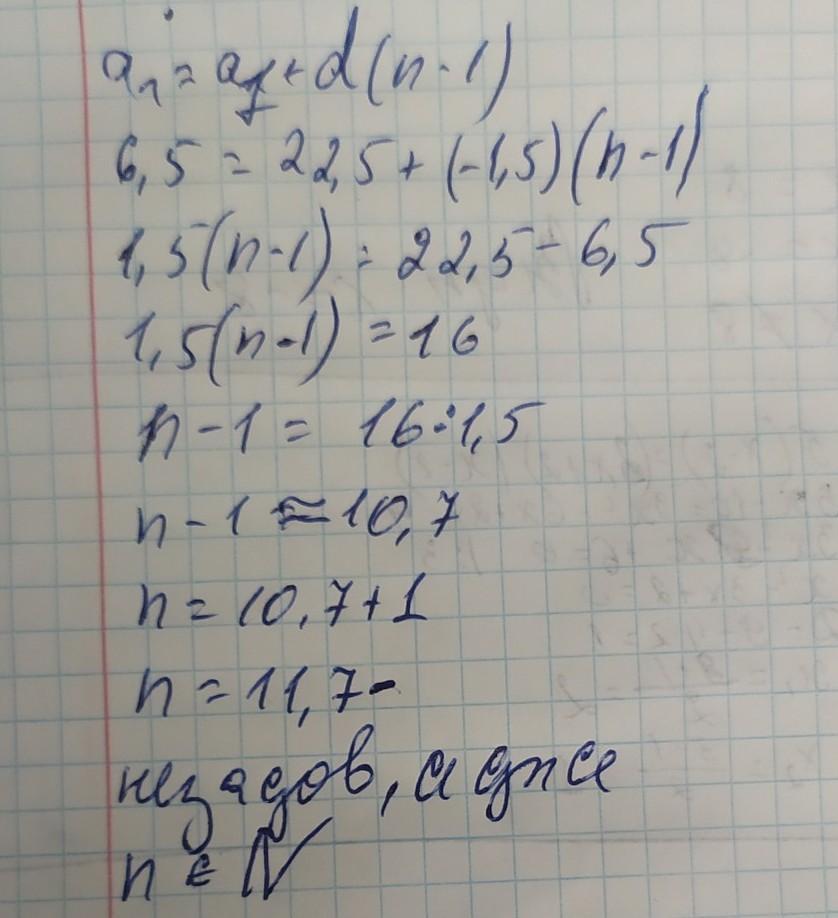 a₁ = a₁ + d(n-1)
6,5 = 22,5 + (-1,5)(n-1)
1,5(n-1) = 22,5 - 6,5
1,5(n-1) = 16
n - 1 = 16 : 1,5
n - 1 ≈ 10,7
n = 10,7 + 1
n = 11,7 -
незадов, адже
n ∈ N